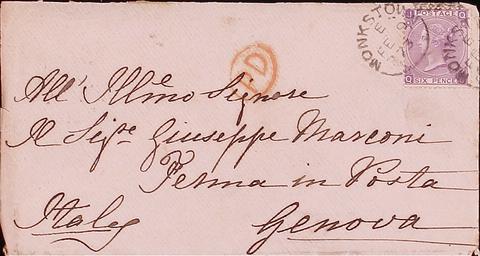 MONKSTOWN
POSTAGE
SIX PENCE
PD
All' Illmo Signore
Il Sigre Giuseppe Marconi
Ferma in Posta
Italy
Genova